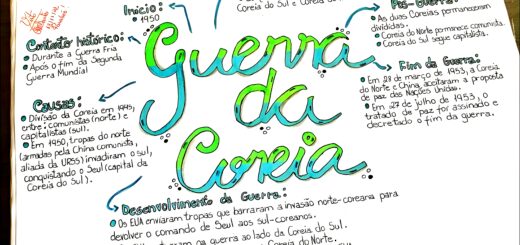 Início:
• 1950
Coreia do Sul e Coreia do
Contexto histórico:
• Durante a Guerra Fria
• Após o fim da Segunda
Guerra Mundial
Pós-Guerra:
• As duas Coreias permaneceram
divididas.
• Coreia do Norte permanece comunista
• Coreia do Sul segue capitalista.
Guerra
da
Coreia
Causas:
• Divisão da Coreia em 1945,
entre: comunistas (norte) e
capitalistas (sul).
• Em 1950, tropas do norte
(armadas pela China comunista,
aliada da URSS) invadiram o sul,
conquistando o Seul (capital da
Coreia do Sul).
Fim da Guerra:
• Em 28 de março de 1953, a Coreia
do Norte e China, aceitaram a proposta
de paz das Nações Unidas.
• Em 27 de julho de 1953, o
tratado de paz foi assinado e
decretado o fim da guerra.
Desenvolvimento da Guerra:
• Os EUA enviaram tropas que barraram a invasão norte-coreana para
devolver o comando de Seul aos sul-coreanos.
na guerra ao lado da Coreia do Sul.
Coreia do Norte.